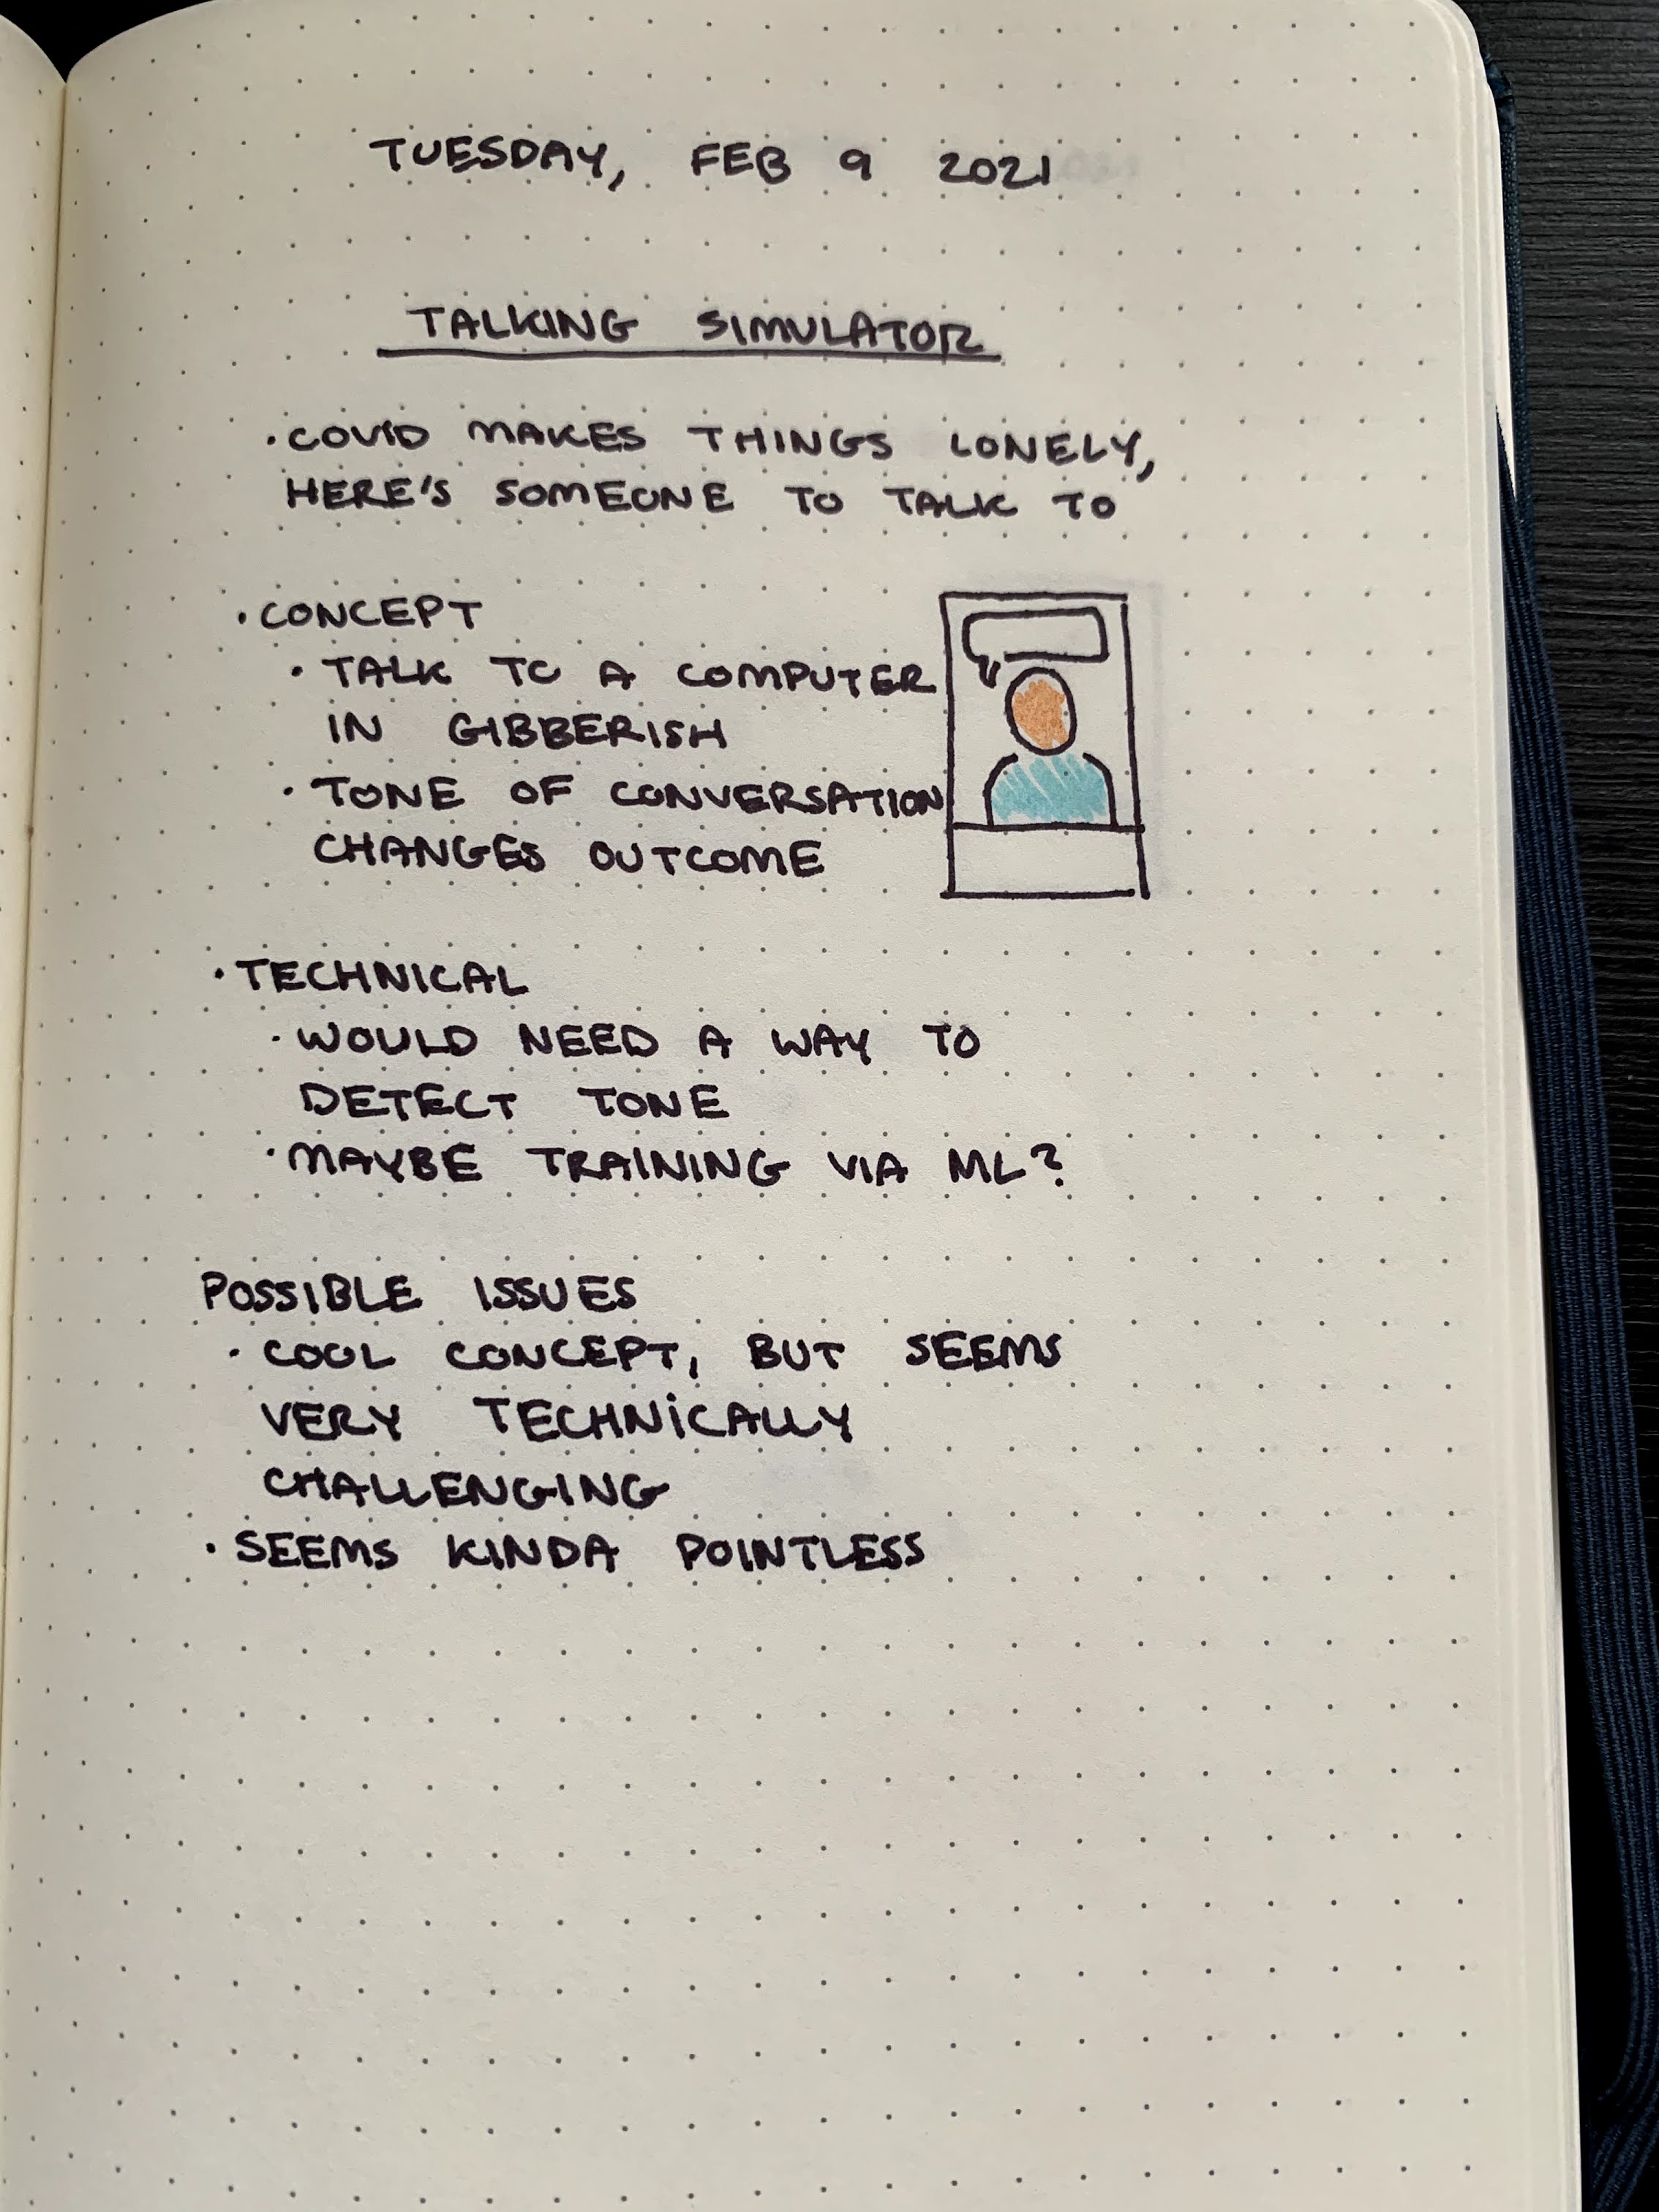 TUESDAY, FEB 9 2021
TALKING SIMULATOR
• COVID MAKES THINGS LONELY,
HERE'S SOMEONE TO TALK TO
• CONCEPT
• TALK TO A COMPUTER
IN GIBBERISH
• TONE OF CONVERSATION
CHANGES OUTCOME
• TECHNICAL
• WOULD NEED A WAY TO
DETECT TONE
• MAYBE TRAINING VIA ML?
POSSIBLE ISSUES
• COOL CONCEPT, BUT SEEMS
VERY TECHNICALLY
CHALLENGING
• SEEMS KINDA POINTLESS